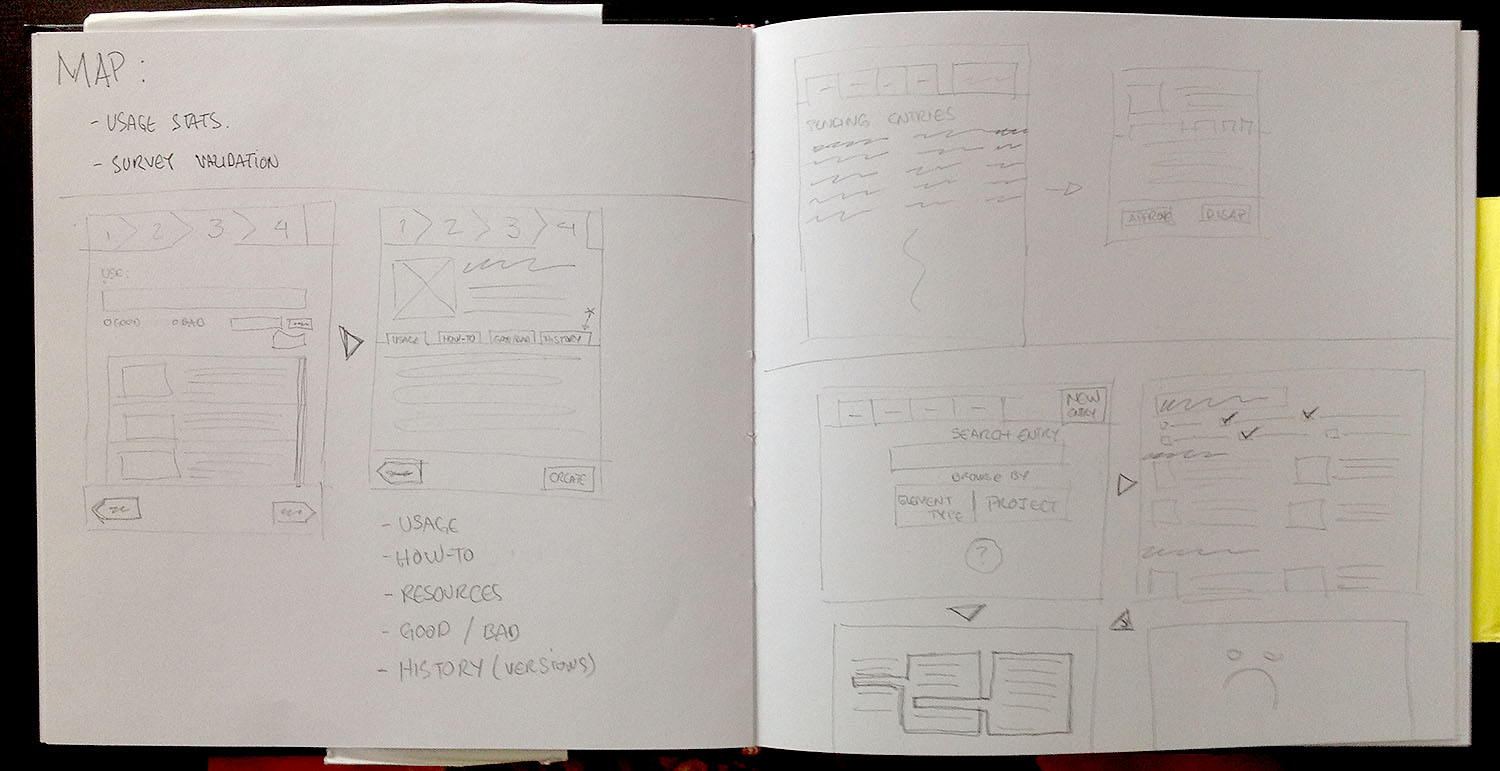 MAP:
- USAGE STATS.
- SURVEY VALIDATION
1 2 3 4
USE:
GOOD BAD
1 2 3 4
USAGE HOW-TO GOOD/BAD HISTORY
CREATE
- USAGE
- HOW-TO
- RESOURCES
- GOOD / BAD
- HISTORY (VERSIONS)
PENDING ENTRIES
APPROVE DISAP
NEW
ENTRY
SEARCH ENTRY
BROWSE BY
ELEMENT TYPE PROJECT
?